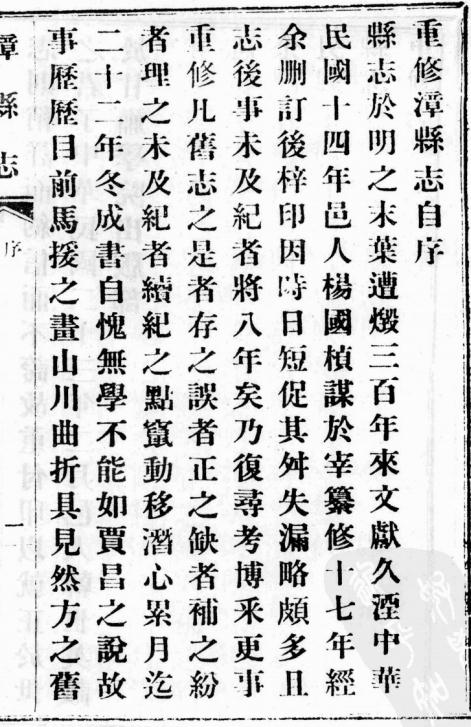 重修漳縣志自序
縣志於明之末葉遭燬三百年來文獻久湮中華
民國十四年邑人楊國楨謀於宰纂修十七年經
余刪訂後梓印因時日短促其舛失漏略頗多且
志後事未及紀者將八年矣乃復尋考博采更事
重修凡舊志之是者存之誤者正之缺者補之紛
者理之未及紀者續紀之點竄動移潛心累月迄
二十二年冬成書自愧無學不能如賈昌之說故
事歷歷目前馬援之畫山川曲折具見然方之舊
漳縣志
序
一